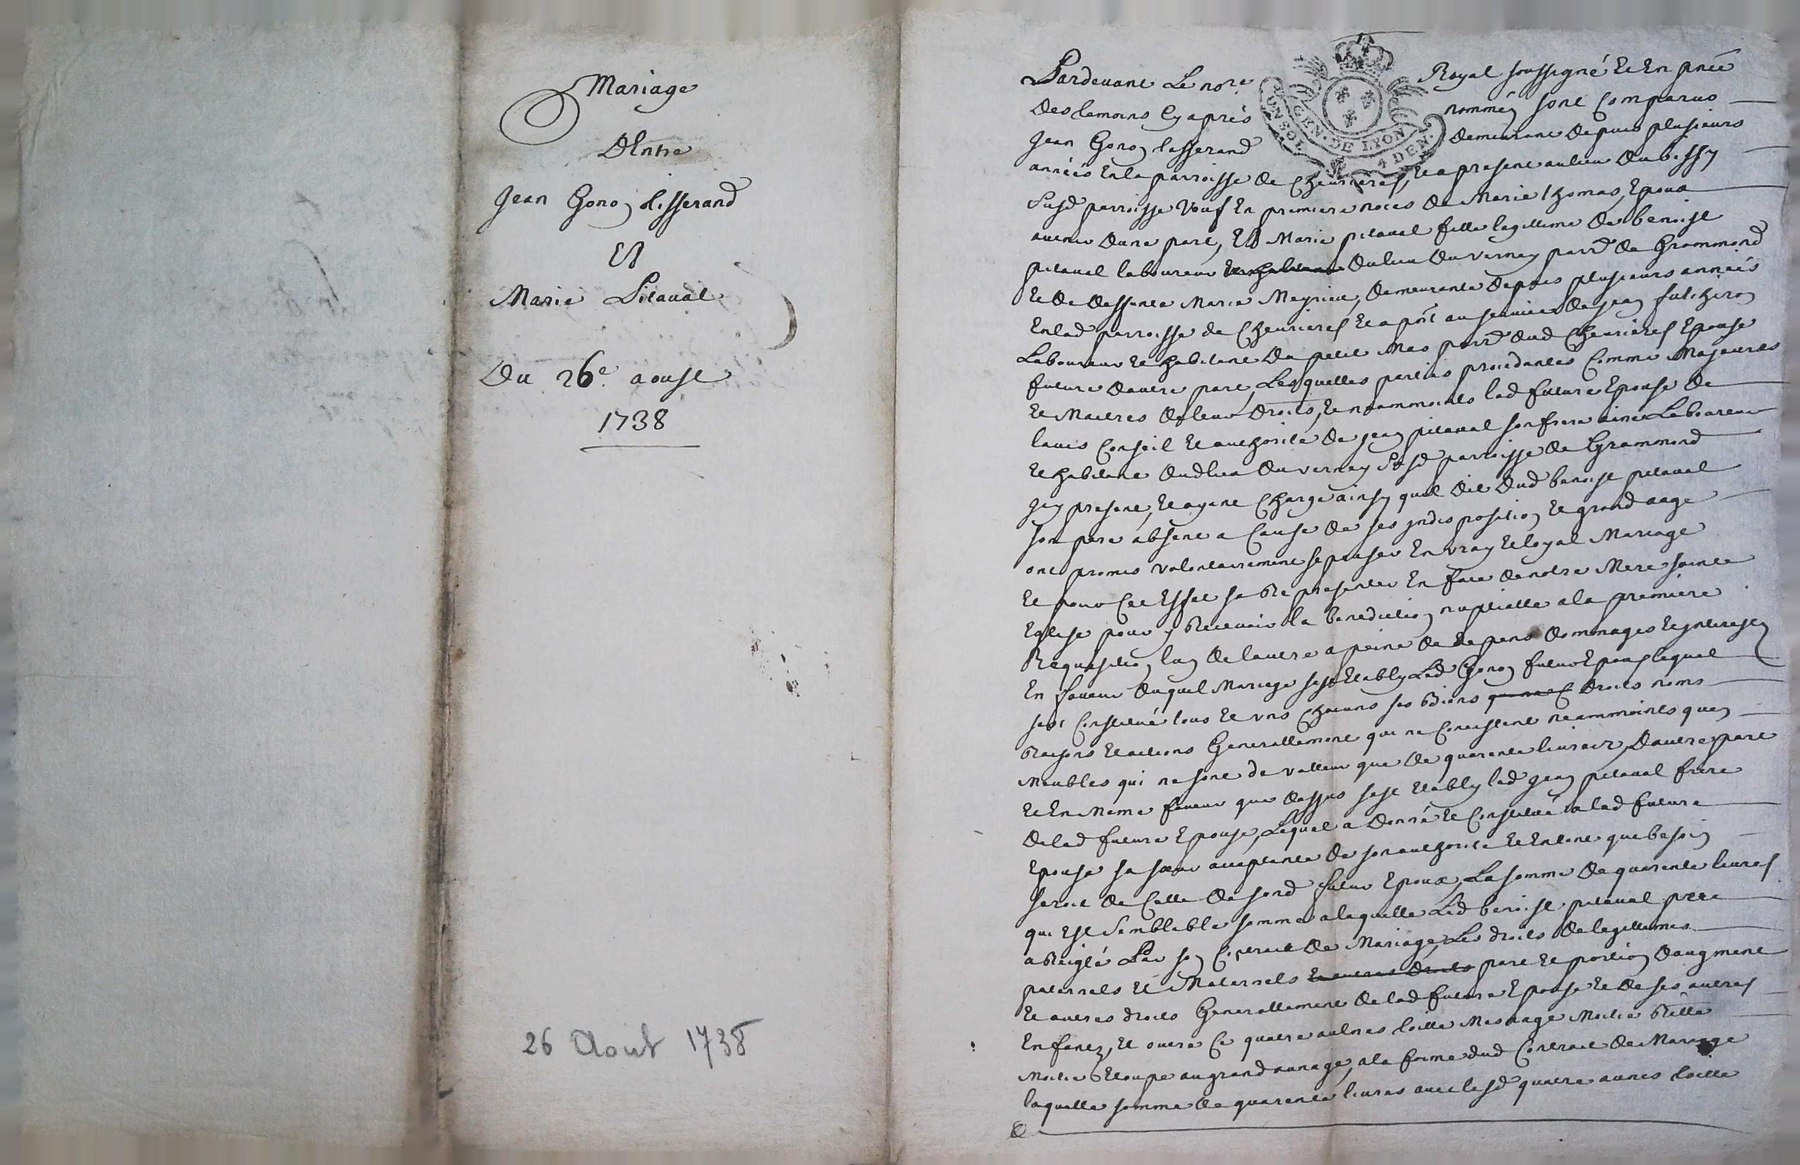 Mariage
D'Entre
Jean Gonon tisserand
Et
Marie Pitaval
Du 26e. aoust
1738
26 Août 1738
GEN. DE LYON
UN SOL 4 DEN.
Pardevant Le nore Royal soussigné Et En pnce
Des temoins Cy apres nommés sont Comparus
Jean Gonon tisserand demeurant depuis plusieurs
années En la parroisse de Chevrieres, Et a present au lieu du bessy
susd parroisse Veuf En premiere noces de Marie thomas, Epoux
avenir dune part, Et Marie pitaval fille legitime de benoist
pitaval laboureur du lieu du verney parr. de Grammond
Et de deffunte Marie Meyrieu, demeurante depuis plusieurs années
En lad parroisse de Chevrieres Et a pnt au service de jean
Laboureur Et habitant du petit Mas parr. dud Chevrieres Epouse
future dautre part, Lesquelles parties procedantes Comme Majeures
Et Maitres de leur Droits, Et neammoints lad future Epouse de
lavis Conseil Et authorité de jean pitaval son frere ainé Laboureur
Et habitant dudlieu du verney susd parroisse de Grammond
jcy present, Et ayant Charge ainsy quil dit dud benoist pitaval
son pere absent a Cause de ses jndisposition Et grand aage
ont promis volontairement sepouser En vray Et loyal Mariage
Et pour Cet Effet se Representer En face de notre Mere sainte
Eglise pour y Recevoir la benediction nuptialle a la premiere
Requisition lun de lautre a peine de depens dommages Et jnterests
En faveur duquel Mariage sest Etably Led Gonon futur Epoux lequel
sest Constitué tous Et uns Chacuns ses biens droits noms
Raisons Et actions Generallement qui ne Consistent neammoints quen
Meubles qui ne sont de valleur que de quarente livres, dautre part
Et En Meme faveur que dessus sest Etably led jean pitaval frere
De lad future Epouse, Lequel a Donné Et Constitué a lad future
Epouse sa sœur acceptante de son authorité Et Entant que besoin
seroit de Celle de sond futur Epoux, La somme de quarente livres
qui Est semblable somme a laquelle Led benoist pitaval pere
a Reiglé Par son Contrat de Mariage, Les droits de legitimes
paternels Et Maternels part Et portion daugment
Et autres droits Generallement de lad future Epouse Et de ses autres
Enfants, Et outre Ce quatre aulnes toille Mesnage Moitié
Moitié Etoupe au grand aunage, a la forme dud Contrat de Mariage
laquelle somme de quarente livres avec lesd quatre aunes toille